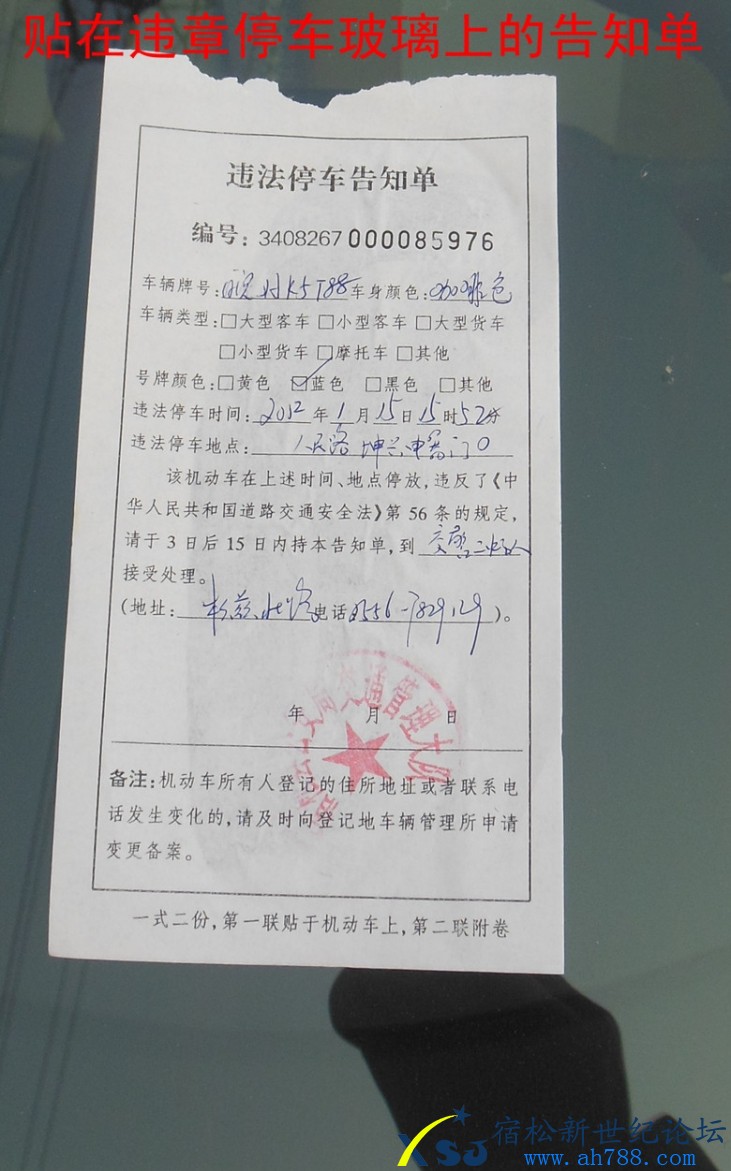 贴在违章停车玻璃上的告知单
违法停车告知单
编号：3408267000085976
车辆牌号：皖HK5T88车身颜色：咖啡色
车辆类型：□大型客车 □小型客车 □大型货车
□小型货车 □摩托车 □其他
号牌颜色：□黄色 ☑蓝色 □黑色 □其他
违法停车时间：2012年1月15日15时52分
违法停车地点：人民路 门口
该机动车在上述时间、地点停放，违反了《中
华人民共和国道路交通安全法》第56条的规定，
请于3日后15日内持本告知单，到 交警二中队
接受处理。
（地址：松兹北路电话0556-7829129）。
年 月 日
备注：机动车所有人登记的住所地址或者联系电
话发生变化的，请及时向登记地车辆管理所申请
变更备案。
一式二份，第一联贴于机动车上，第二联附卷
XSJ宿松新世纪论坛
www.ah788.com